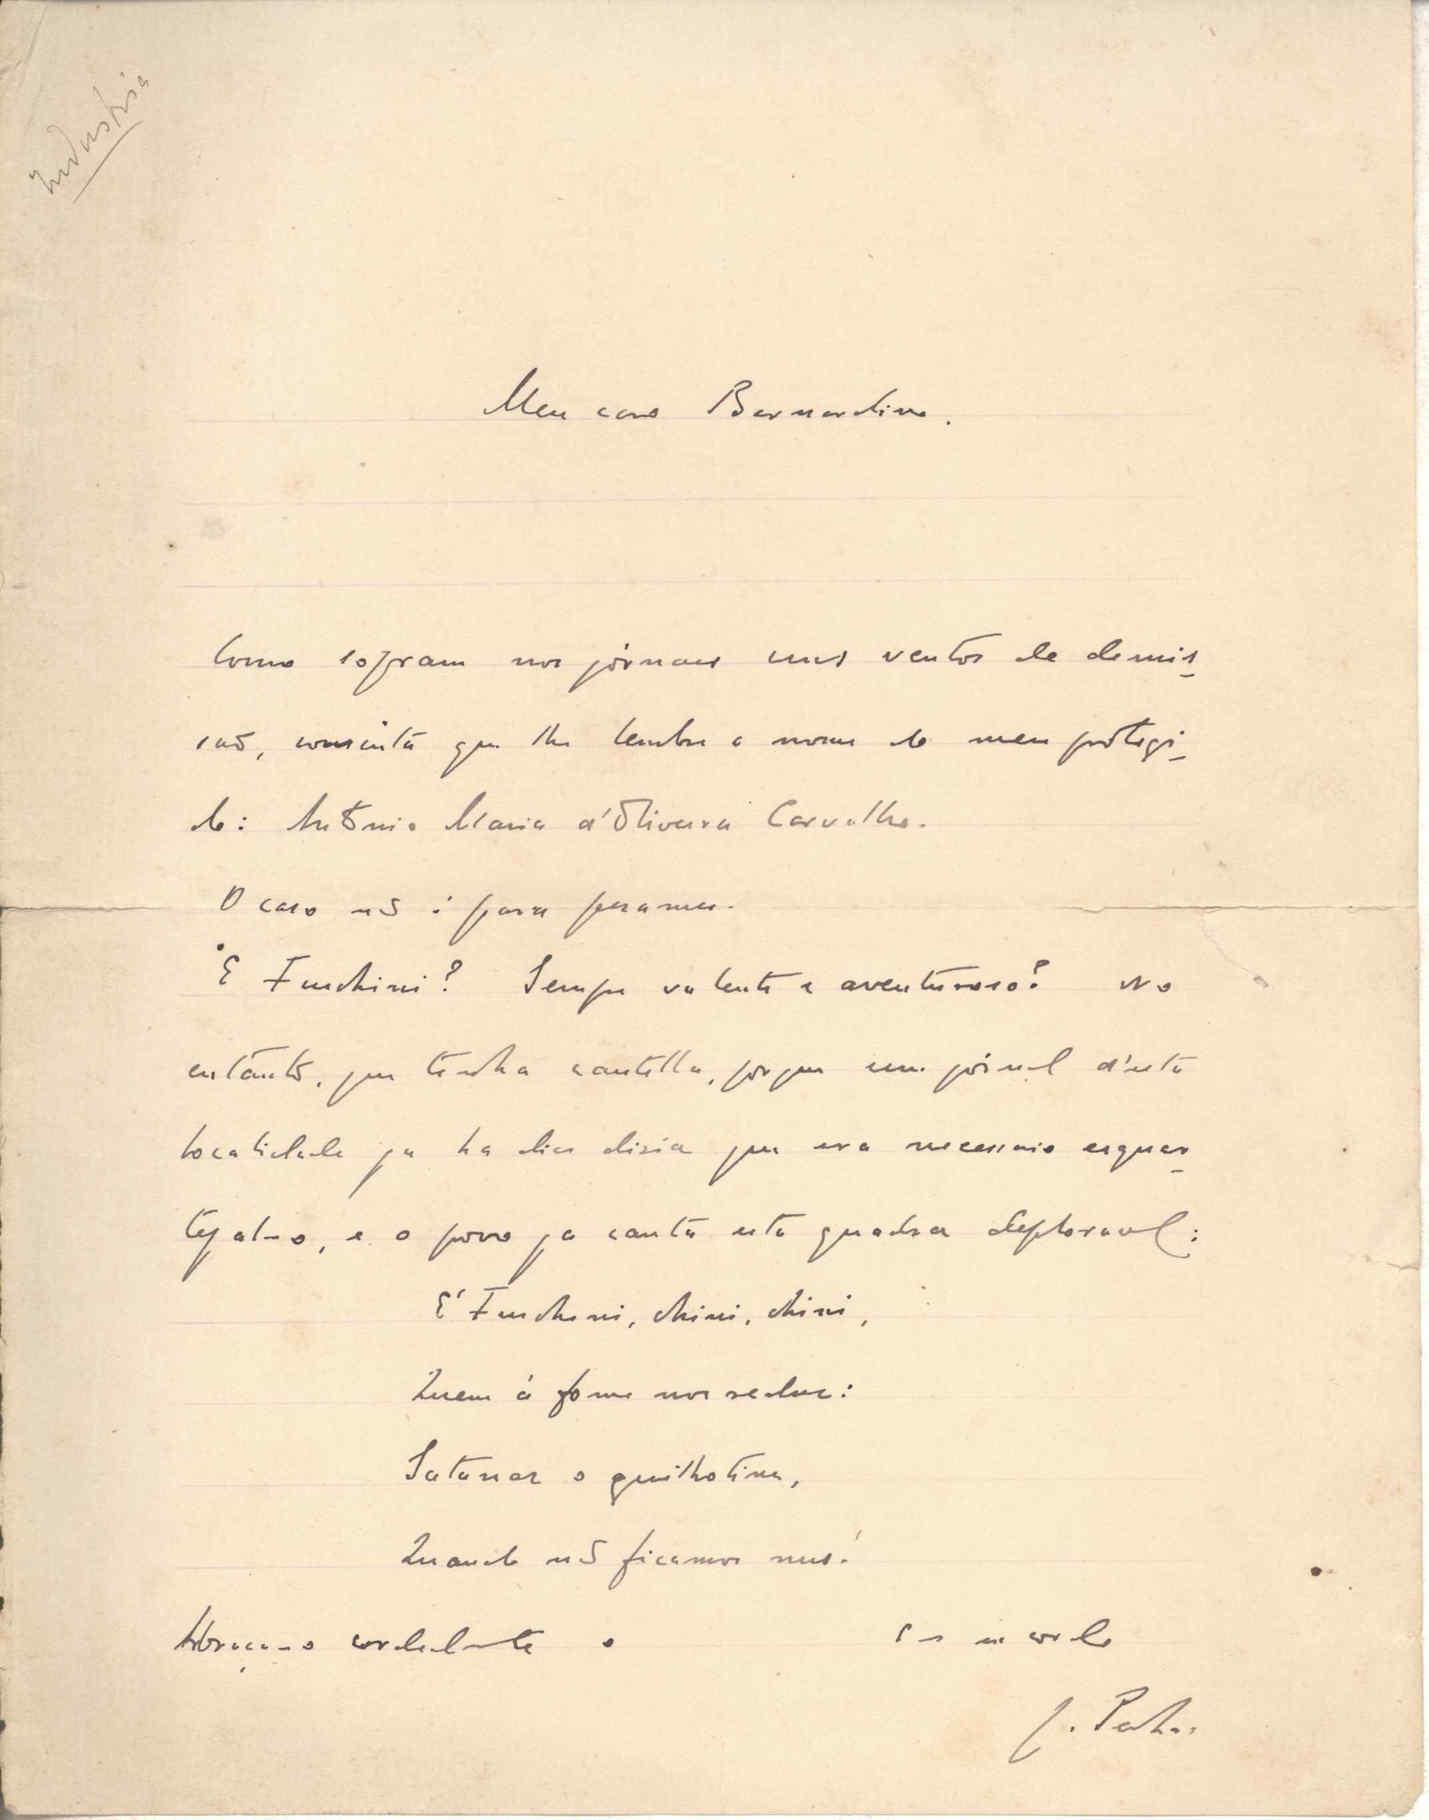 Industria
Meu caro Bernardino.
Como sopram nos jornaes uns ventos de demis-
são, consinta que lhe lembre o nome do meu protegi-
do: Antonio Maria d'Oliveira Carvalho.
O caso não é para
E Fuschini? Sempre valente e aventuroso? No
entanto, que tenha cautella, porque um jornal d'esta
localidade ja ha dias disia que era necessario esquar-
tejal-o, e o povo ja canta esta quadra deploravel:
E' Fuschini, chini, chini,
Quem á fome nos reduz:
Satanaz o guilhotine,
Quando não ficamos nus!
Abraça-o cordealmente o
J.